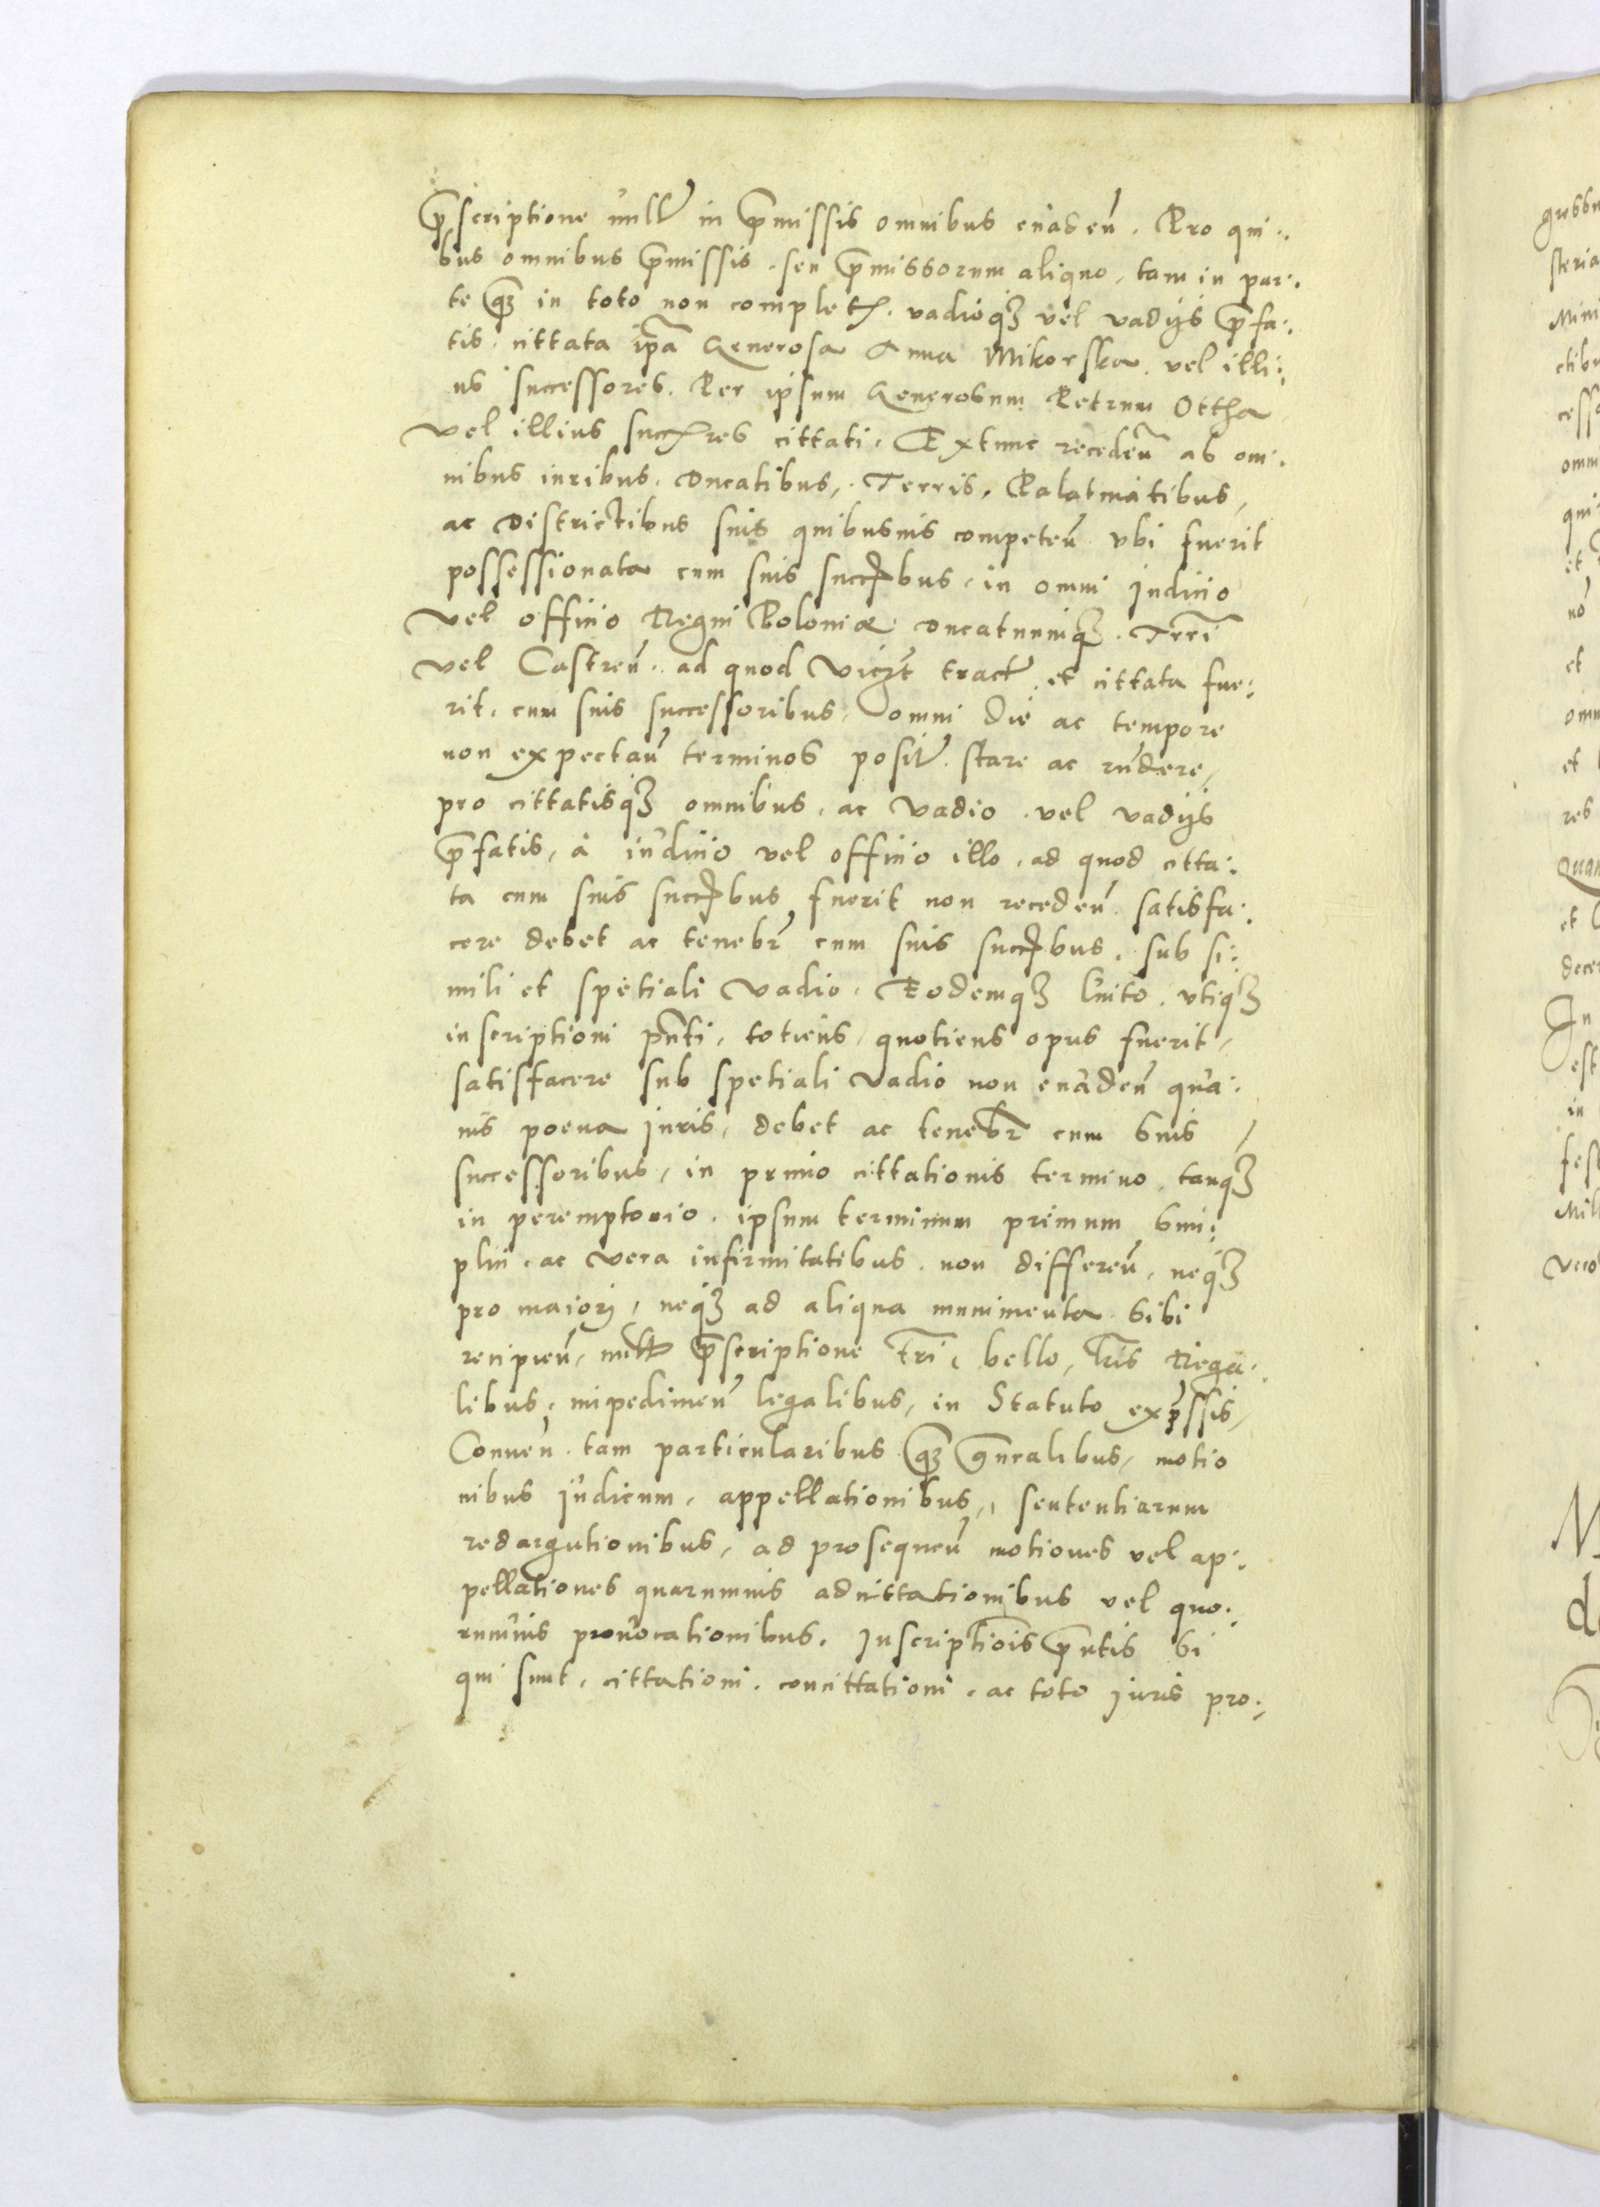 p̄scriptione null̃ in p̄missis omnibus euadeñ. Pro qui:
bus omnibus p̄missis. seu p̄missorum aliquo, tam in par:
te q̄ꝫ in toto non complet̃. vadioqꝫ vel vadijs p̄fa:
tis. cittata ip̄a Generosa Anna Mikorska. vel illi:
us successores. Per ipsum Generosum Petrum Ottha
vel illius succr̃es cittati. Extunc recedeñ ab om:
nibus iuribus. Ducatibus, Terris, Palatinatibus,
ac Districtibus suis quibusuis competeñ vbi fuerit
possessionata cum suis succr̃bus, in omni Iudicio
vel officio Regni Poloniæ ducatuumqꝫ. Trr̃i
vel Castreñ. ad quod vict̃ tract̃ et cittata fue:
rit. cum suis successoribus. omni die ac tempore
non expectañ terminos posit̃. stare ac rñdere,
pro cittatisqꝫ omnibus. ac vadio. vel vadijs
p̄fatis, à iudicio vel officio illo, ad quod citta:
ta cum suis succr̃bus fuerit non recedeñ satisfa:
cere debet ac teneb̃r cum suis succr̃bus. sub si:
mili et spetiali vadio. Eodemqꝫ luito. vtiqꝫ
inscriptioni pñti, totiens, quotiens opus fuerit,
satisfacere sub spetiali vadio non euadeñ qua:
uis poena iuris, debet ac teneb̃r cum suis
successoribus, in primo cittationis termino, tanqꝫ
in peremptorio. ipsum terminum primum simi:
plici. ac vera infirmitatibus. non differeñ, neqꝫ
pro maiori, neqꝫ ad aliqua munimenta sibi
recipieñ, null̃ p̄scriptione Tr̃i, bello, lr̃is Rega:
libus, impedimeñ legalibus, in Statuto exp̄ssis,
Conueñ. tam particularibus q̄ꝫ gñealibus, motio
nibus iudicum, appellationibus, sententiarum
redargutionibus, ad prosequeñ motiones vel ap:
pellationes quarumuis adcittationibus vel quo:
rumuis prouocationibus. Inscriptiois p̄ntis si
qui sunt, cittationi. concittationi. ac toto iuris pro: